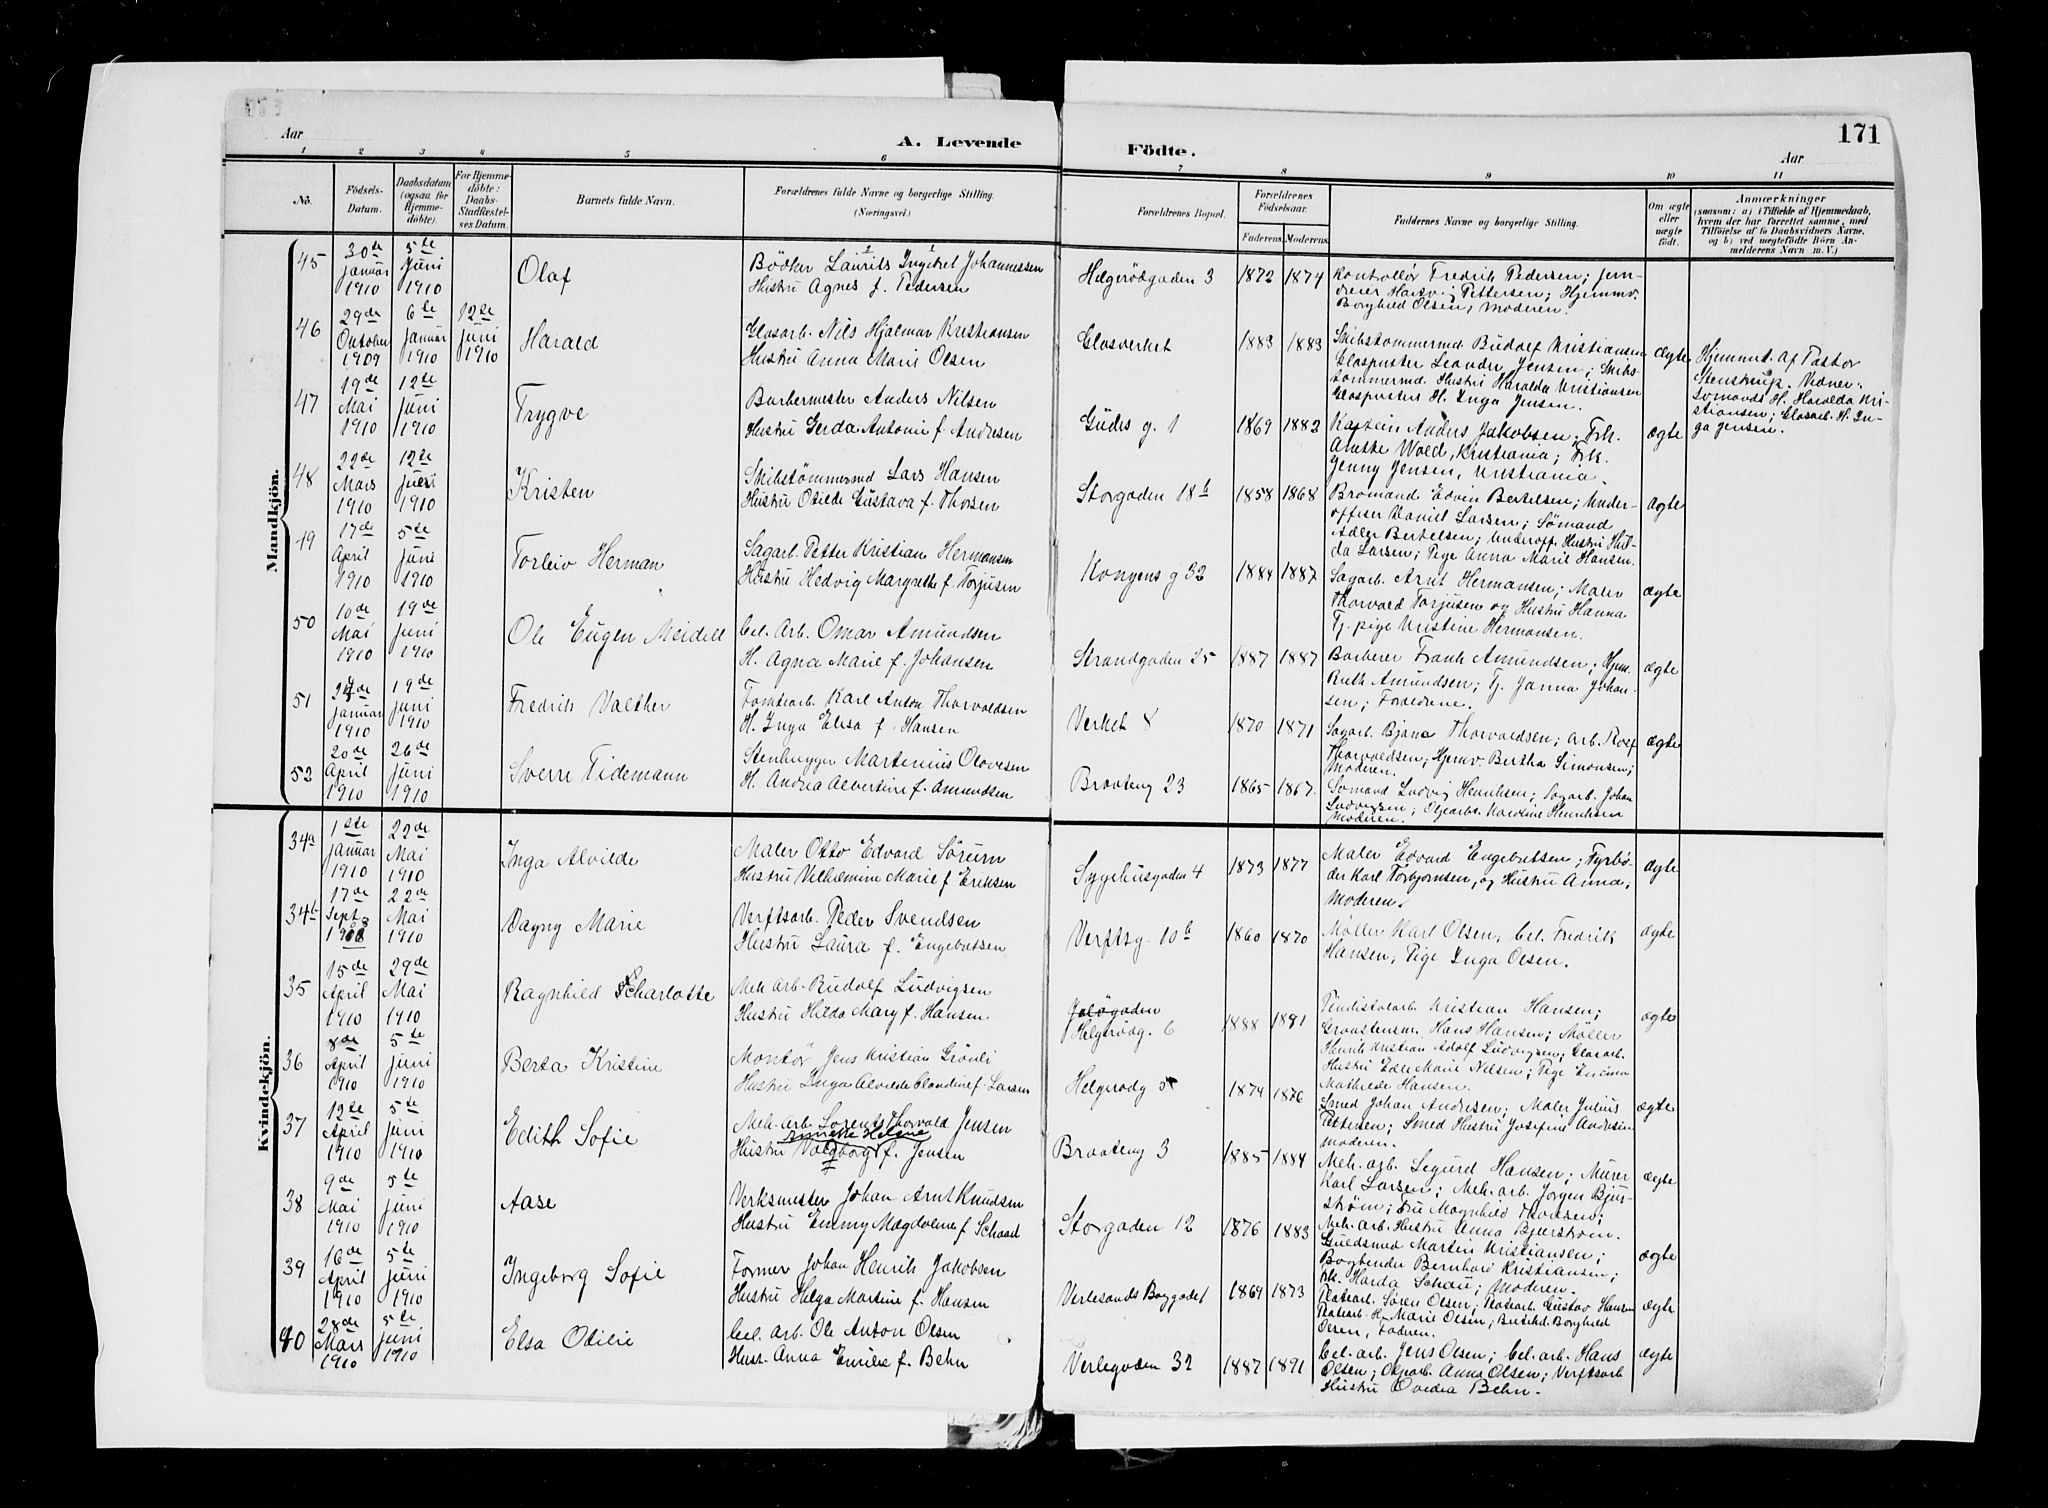 171
Aar
A. Levende Födte.
Aar
1 2 3 4 5 6 7 8 9 10 11
No.
Födsels-Datum.
Daabsdatum (ogsaa for Hjemme-döbte).
For Hjemme-döbte: Daabs-Stadfæstel-ses Datum.
Barnets fulde Navn.
Forældrenes fulde Navne og borgerlige Stilling.
(Næringsvei.)
Forældrenes Bopæl.
Forældrenes Födselsaar.
Faderens. Moderens.
Faddernes Navne og borgerlige Stilling.
Om ægte eller uægte födt.
Anmærkninger
(saasom: a) i Tilfælde af Hjemmedaab,
hvem der har forrettet samme, med
Tilföielse af to Daabsvidners Navne,
og b) ved uægtefödte Börn An-
melderens Navn m. V.)
Mandkjön.
45 30de Januar 1910 5te Juni 1910 Olaf
Bödker Laurits Ingebret Johannessen
Hustru Agnes f. Pedersen
Helgerödgaden 3 1872 1874
Kontollör Fredrik Pedersen; jern-
Pettersen; Hjemmv.
Borghild Olsen; Moderen.
46 29de Oktober 1909 6te Januar 1910 12te Juni 1910 Harald
Glasarb. Nils Hjalmar Kristiansen
Hustru Anna Marie Olsen
Glasverket 1883 1883
Skibstömmermd Rudolf Kristiansen
Glaspuster Leander Jensen; Skibs-
tömmermd. Hustru Haralda Kristiansen
Glaspusters H. Inga Jensen.
ægte
Hjemmed. af Pastor
Stenstrup. Vidner:
Sömands H. Haralda Kri-
stiansen; Glasarb. H. In-
ga Jensen.
47 19de Mai 1910 12te Juni 1910 Trygve
Barbermester Anders Nilsen
Hustru Gerda Antonie f. Andresen
Gudes g. 1 1869 1882
Kaptein Anders Jakobsen; Frk.
Anette Wold, Kristiania; Frk.
Jenny Jensen, Kristiania.
ægte
48 22de Mars 1910 12te Juni 1910 Kristen
Skibstömmermd Lars Hansen
Hustru Otilde Gustava f. Thorsen
Storgaden 18b 1858 1868
Bromand Edvin Bertelsen; Under-
officer Daniel Larsen; Sømand
Adler Bertelsen; Underoff. Hustru Hul-
da Larsen; Pige Anna Marie Hansen.
ægte
49 17de April 1910 5te Juni 1910 Torleiv Herman
Sagarb. Petter Kristian Hermansen
Hustru Hedvig Margrethe f. Torjusen
Kongens g 32 1884 1887
Sagarb. Arnt Hermansen; Maler
Thorvald Torjusen og Hustru Hanna
Tj. pige Kristine Hermansen.
ægte
50 10de Mai 1910 19de Juni 1910 Ole Eugen Meidell
Cel. Arb. Omar Amundsen
H. Agna Marie f. Johansen
Strandgaden 25 1887 1887
Barberer Frank Amundsen; Hjem.
Ruth Amundsen; Tj. Janna Johan-
sen; Forældrene.
ægte
51 24de Januar 1910 19de Juni 1910 Fredrik Valther
Tomtearb. Karl Anton Thorvaldsen
H. Inga Elisa f. Hansen
Verket 8 1870 1871
Sagarb. Bjarne Thorvaldsen; Arb. Rolf
Thorvaldsen; Hjemv. Bertha Simonsen;
Moderen.
ægte
52 20de April 1910 26de Juni 1910 Sverre Tidemann
Stenhugger Martinius Olavesen
H. Andrea Alvertine f. Amundsen
Braateng 23 1865 1867.
Sømand Ludvig Henriksen; Sagarb. Johan
Ludvigsen; Oljearbs. Karoline Henriksen
Moderen.
Kvindekjön.
34a 1ste Januar 1910 22de Mai 1910 Inga Alvilde
Maler Otto Edvard Sörum
Hustru Vilhelmine Marie f Eriksen
Sygehusgaden 4 1873 1877
Maler Edvard Engebretsen; Fyrbö-
der Karl Torbjornsen, og Hustru Anna;
Moderen.
ægte
34b 17de Sept. 1908 22de Mai 1910 Dagny Marie
Verftsarb. Peder Svendsen
Hustru Laura f. Engebretsen
Verftsg. 10b 1860 1870
Møller Karl Olsen, Cel. Fredrik
Hansen; Pige Inga Olsen.
ægte
35 15de April 1910 29de Mai 1910 Ragnhild Charlotte
Mek arb. Rudolf Ludvigsen
Hustru Hilda Mary f. Hansen
Jelögaden
Helgerödg. 6 1888 1891
Kristian Hansen;
Hans Hansen; Møller
Henrik Kristian Adolf Ludvigsen; Glasarb.
Hustru Edle Marie Nilsen; Pige Emma
Mathilde Hansen.
ægte
36 8de April 1910 5te Juni 1910 Berta Kristine
Montør Jens Kristian Grönli
Hustru Inga Alvilde Blandine f. Larsen
Helgerödg 5 1874 1876
Smed Johan Andresen; Maler Julius
Pettersen; Smed Hustru Josefine Andresen
Moderen.
ægte
37 12te April 1910 5te Juni 1910 Edith Sofie
Mek. arb. Lorents Thorvald Jensen
Annette Helene
Hustru Valborg f. Jensen
Braateng 3 1885 1884
Mek. arb. Sigurd Hansen; Murer
Karl Larsen; Mek. arb. Jörgen Bjur-
ström; Fru Magnhild Thorsen;
Mek. arb. Hustru Anna Bjurström.
ægte
38 9de Mai 1910 5te Juni 1910 Aase
Verksmester Johan Arnt Knudsen
Hustru Emmy Magdalene f Schaad
Storgaden 12 1876 1883
Guldsmed Martin Kristiansen;
Bogbinder Bernhard Kristiansen;
Frk. Harda Schau; Moderen.
ægte
39 16de April 1910 5te Juni 1910 Ingeborg Sofie
Former Johan Henrik Jakobsen
Hustru Helga Martine f. Hansen
Verlesands Baggade 1 1869 1873
Platearb. Sören Olsen; Platearb. Gustav Hansen
Platearb. H. Marie Olsen; Butikd. Borghild
Olsen, Faderen.
ægte
40 28de Mars 1910 5te Juni 1910 Elsa Otilie
Cel. arb. Ole Anton Olsen
Hust. Anna Emilie f. Behn
Verlegaden 32 1887 1891
Cel. arb. Jens Olsen; Cel. arb. Hans
Olsen; Oljearb. Anna Olsen; Verftsarb
Hustru Ovidia Behn.
ægte